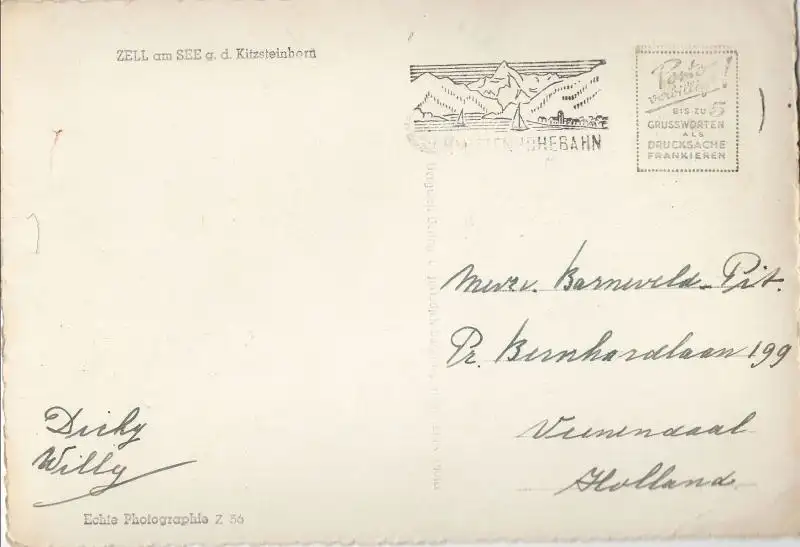 ZELL am SEE g. d. Kitzsteinhorn
HÖHEBAHN
Porto
verbilligt!
BIS ZU 5
GRUSSWORTEN
ALS
DRUCKSACHE
FRANKIEREN
Barneveld - Pit.
Pr. Bernhardlaan 199
Veenendaal
Holland
Dicky
Willy
Echte Photographie Z 56